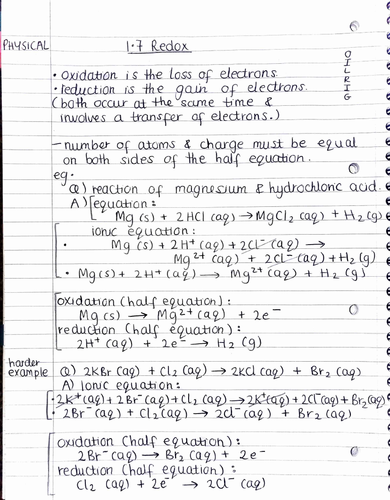 PHYSICAL
1.7 Redox
OILRIG
• oxidation is the loss of electrons.
• reduction is the gain of electrons.
(both occur at the same time &
involves a transfer of electrons.)
– number of atoms & charge must be equal
on both sides of the half equation.
eg.
Q) reaction of magnesium & hydrochloric acid.
A) equation:
Mg(s) + 2HCl(aq) → MgCl₂(aq) + H₂(g)
ionic equation:
• Mg(s) + 2H⁺(aq) + 2Cl⁻(aq) →
Mg²⁺(aq) + 2Cl⁻(aq) + H₂(g)
• Mg(s) + 2H⁺(aq) → Mg²⁺(aq) + H₂(g)
oxidation (half equation):
Mg(s) → Mg²⁺(aq) + 2e⁻
reduction (half equation):
2H⁺(aq) + 2e⁻ → H₂(g)
harder
example
Q) 2KBr(aq) + Cl₂(aq) → 2KCl(aq) + Br₂(aq)
A) Ionic equation:
• 2K⁺(aq) + 2Br⁻(aq) + Cl₂(aq) → 2K⁺(aq) + 2Cl⁻(aq) + Br₂(aq)
• 2Br⁻(aq) + Cl₂(aq) → 2Cl⁻(aq) + Br₂(aq)
oxidation (half equation):
2Br⁻(aq) → Br₂(aq) + 2e⁻
reduction (half equation):
Cl₂(aq) + 2e⁻ → 2Cl⁻(aq)